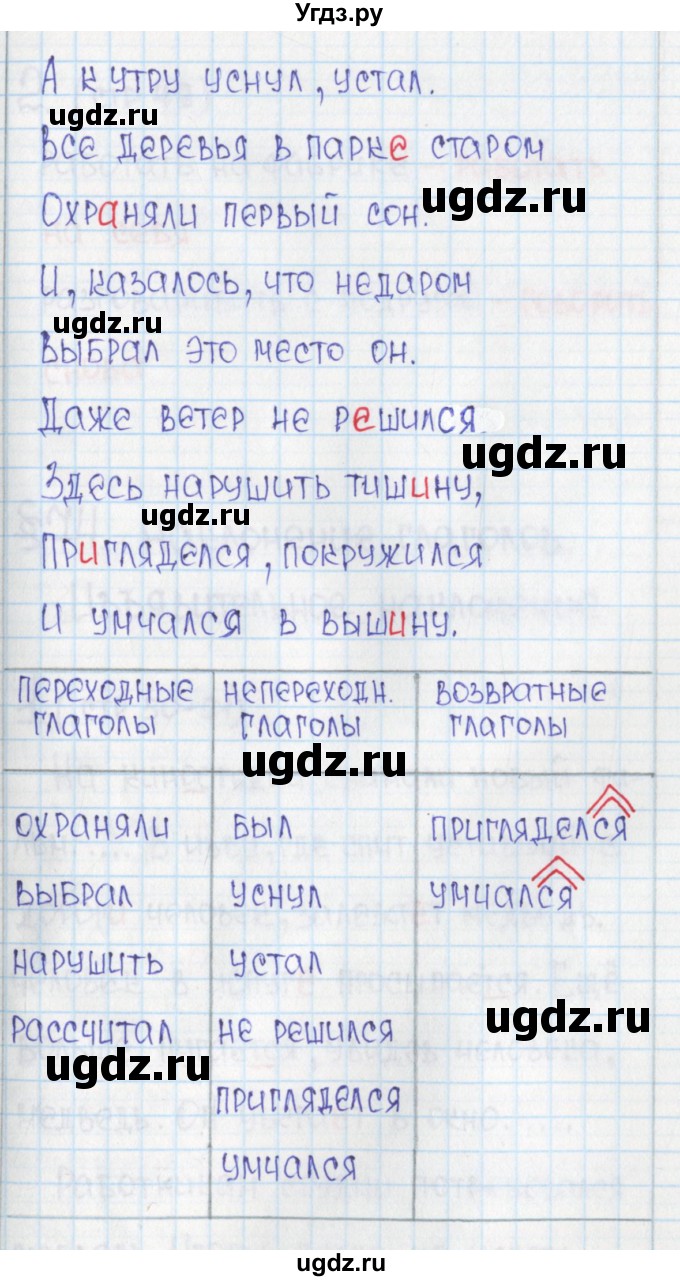 Угдз.ру
А к утру уснул, устал.
ugdz.ru
Все деревья в парке старом
ugdz.ru
Охраняли первый сон.
И, казалось, что недаром
ugdz.ru
Выбрал это место он.
Даже ветер не решился
ugdz.ru
Здесь нарушить тишину,
ugdz.ru
Пригляделся, покружился
И умчался в вышину.
переходные глаголы | непереходн. глаголы | возвратные глаголы
ugdz.ru
охраняли | был | пригляделся
выбрал | уснул | умчался
нарушить | устал
рассчитал | не решился
ugdz.ru
ugdz.ru
пригляделся
умчался
ugdz.ru